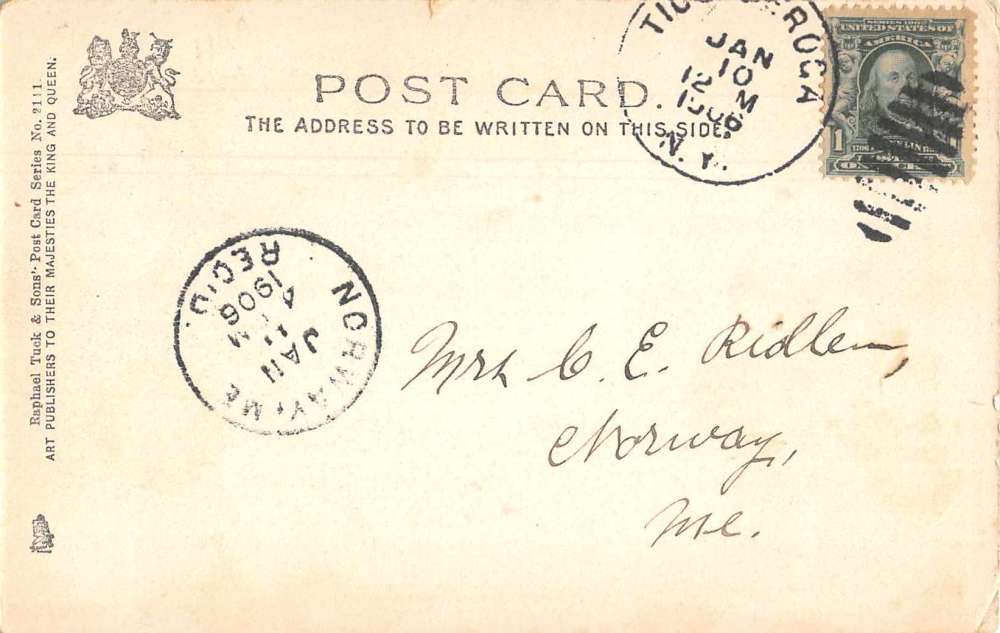 POST CARD.
THE ADDRESS TO BE WRITTEN ON THIS SIDE.
Raphael Tuck & Sons' Post Card Series No. 2111.
ART PUBLISHERS TO THEIR MAJESTIES THE KING AND QUEEN.
JAN
10
12 M
1906
N.Y.
SERIES 1902
UNITED STATES OF
AMERICA
1
NORWAY, ME
JAN
11
4
1906
REC'D.
Mrs C. E. Ridlen,
Norway,
Me.